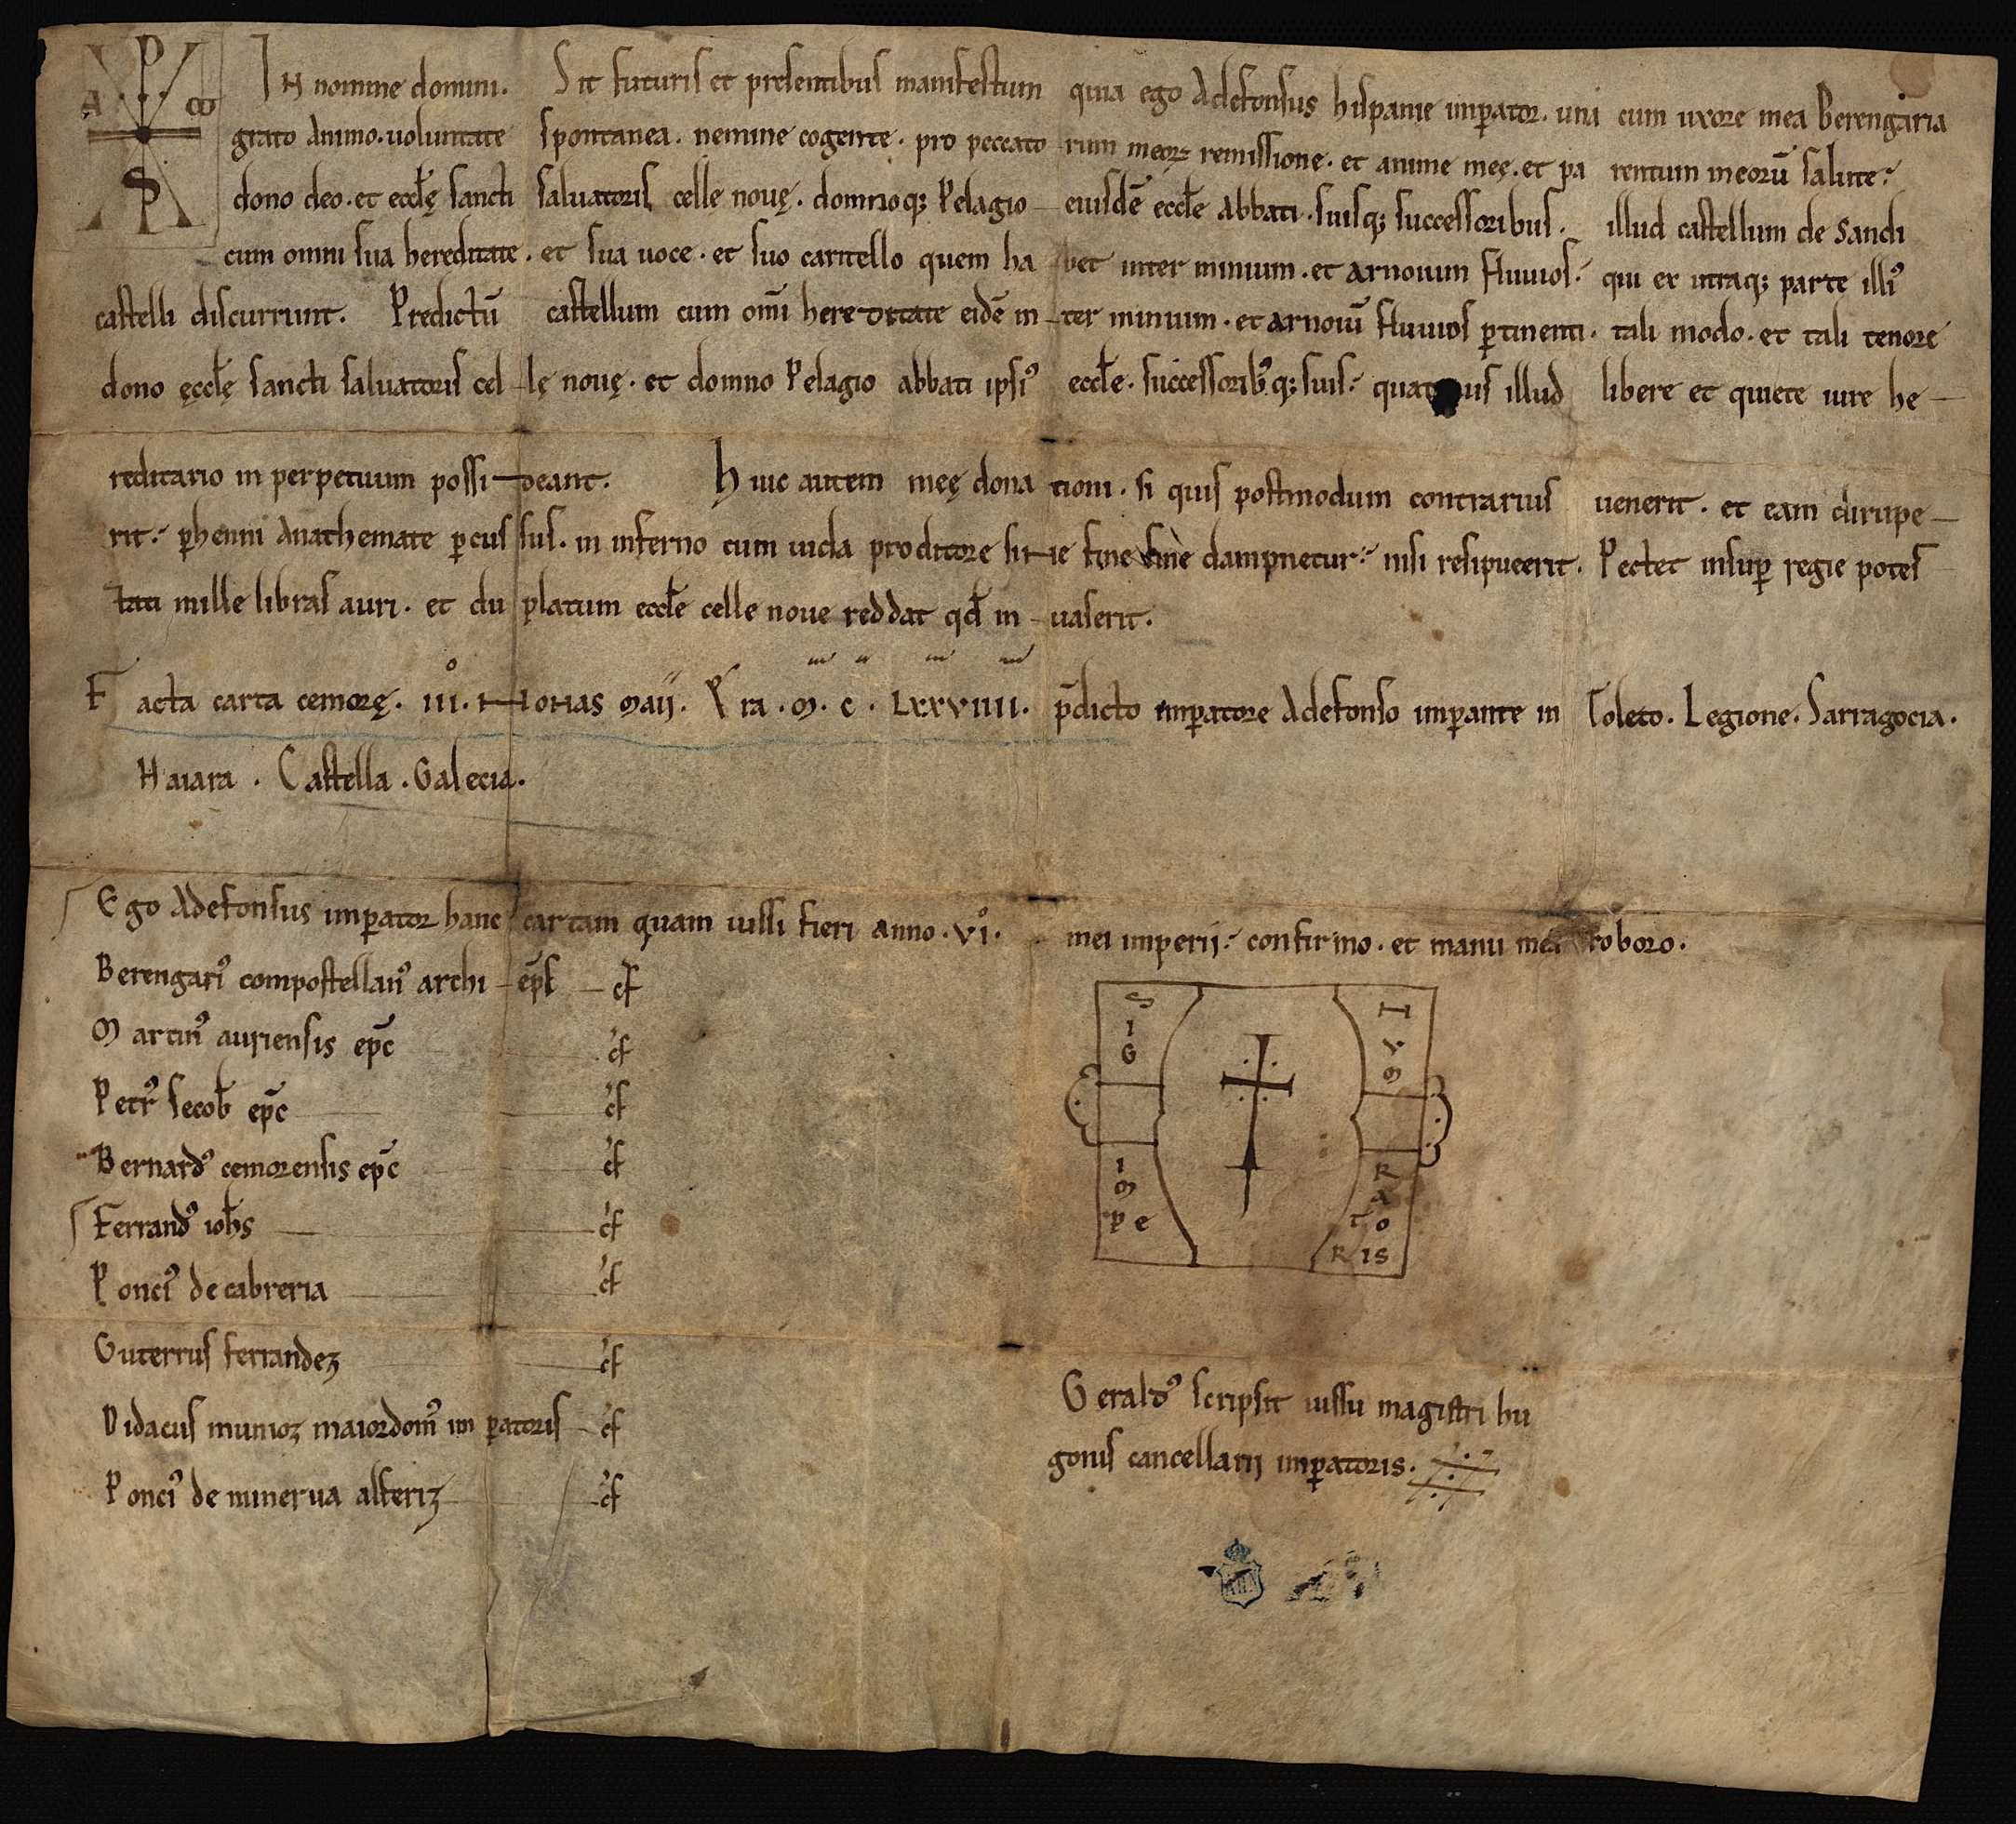 A ω
P
S
IN nomine domini. Sit futuris et presentibus manifestum quia ego Adefonsus hispanie impator. una cum uxore mea Berengaria
grato animo. uoluntate spontanea. nemine cogente. pro peccato rum meoꝝ remissione. et anime meę. et pa rentum meorū salute.
dono deo. et ecclę sancti saluatoris cellę nouę. domnoqꝫ Pelagio eiusdē eccle abbati. suisqꝫ successoribus. illud castellum de Sandi
cum omni sua hereditate. et sua uoce. et suo caritello quem ha bet inter minium. et arnoium fluuios. qui ex utraqꝫ parte illiꝰ
castelli discurrunt. Predictū castellum cum om̄i hereditate eidē in ter minium. et arnoiū fluuios ꝑtinenti. tali modo. et tali tenore
dono ęcclę sancti saluatoris cel lę nouę. et domno Pelagio abbati ipsiꝰ eccle. successoribꝰqꝫ suis. illud libere et quiete iure he
reditario in perpetuum possi deant. Huic autem meę dona tioni. si quis postmodum contrarius uenerit. et eam dirupe
rit. ꝑhenni Anathemate ꝑcus sus. in inferno cum iuda proditore sine fine dampnetur. nisi resipuerit. Pectet insuꝑ regie potes
tati mille libras auri. et du platum eccle celle noue reddat qd in uaserit.
Facta carta cemorę. iiiº. NONAS Maij. Era. M. C. LXXVIIII. p̄dicto impatore Adefonso impante in Toleto. Legione. Sarragocia.
Naiara. Castella. Galecia.
Ego Adefonsus impator hanc cartam quam iussi fieri anno. VIº. mei imperij. confirmo. et manu mea roboro.
Berengariꝰ compostellanꝰ archi ep̄s cf
Martinꝰ auriensis ep̄c cf
Petrꝰ secob ep̄c cf
Bernardꝰ cemorensis ep̄c cf
Ferrandꝰ iohs cf
Ponciꝰ de cabreria cf
Guterrus ferrandez cf
Didacus munioz maiordomꝰ im ꝑatoris cf
Ponciꝰ de minerua alferiz cf
SIG
NVM
IMPE
RATORIS
Geraldꝰ scripsit iussu magistri hu
gonis cancellarij imꝑatoris.